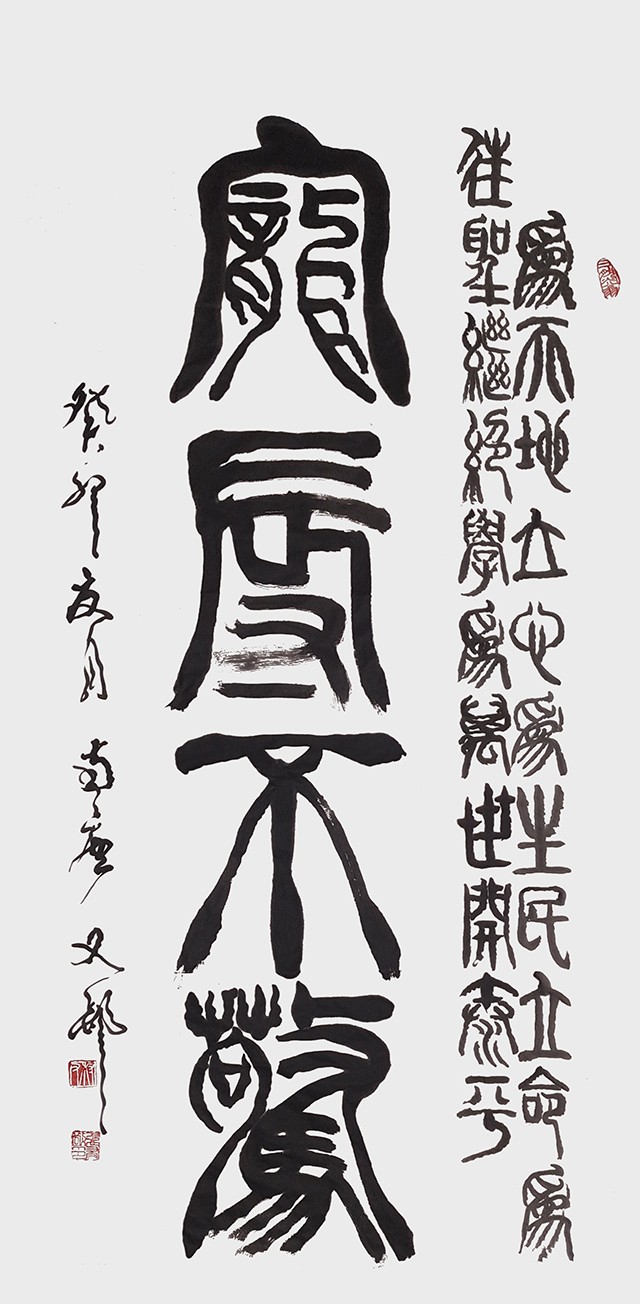 爲天地立心爲生民立命爲
往聖繼絕學爲萬世開泰平
寵辱不驚
癸卯夏月